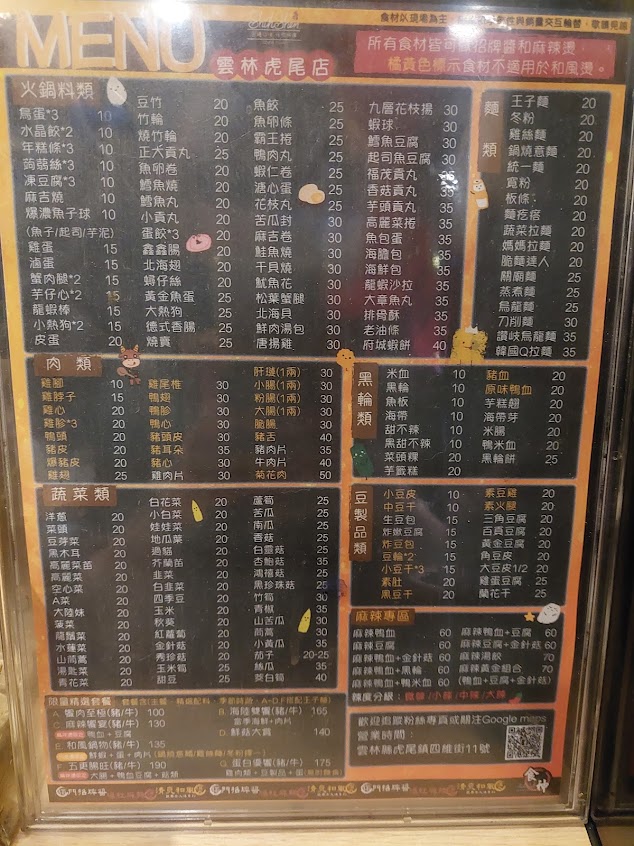 MENU
雲林虎尾店
所有食材皆可
招牌醬和麻辣燙
橘黃色標示食材不適用於和風燙。
火鍋料類
鳥蛋*3 10
水晶餃*2 10
年糕條*3 10
蒟蒻絲*3 10
凍豆腐*3 10
麻吉燒 10
爆濃魚子球 10
(魚子/起司/芋泥)
雞蛋 15
滷蛋 15
蟹肉腿*2 15
芋仔心*2 15
龍蝦棒 15
小熱狗*2 15
皮蛋 15
豆竹 20
竹輪 20
燒竹輪 20
正大貢丸 25
魚卵卷 20
鱈魚燒 20
鱈魚丸 20
小貢丸 20
蛋餃*3 20
鑫鑫腸 20
北海翅 20
蟳仔絲 20
黃金魚蛋 25
大熱狗 25
德式香腸 25
燒賣 25
魚餃 25
魚卵條 25
霸王捲 25
鴨肉丸 25
蝦仁卷 25
溏心蛋 25
花枝丸 25
苦瓜封 30
麻吉卷 30
鮭魚燒 30
干貝燒 30
魷魚花 30
松葉蟹腿 30
北海貝 30
鮮肉湯包 30
唐揚雞 30
九層花枝揚 30
蝦球 30
鱈魚豆腐 30
起司魚豆腐 30
福茂貢丸 35
香菇貢丸 35
芋頭貢丸 35
高麗菜捲 35
魚包蛋 35
海膽包 35
海鮮包 35
龍蝦沙拉 35
大章魚丸 35
排骨酥 35
老油條 35
府城蝦餅 40
麵類
王子麵 20
冬粉 20
雞絲麵 20
鍋燒意麵 20
統一麵 20
寬粉 20
板條 20
麵疙瘩 20
蔬菜拉麵 20
媽媽拉麵 20
脆麵達人 20
關廟麵 25
蒸煮麵 25
烏龍麵 25
刀削麵 30
讚岐烏龍麵 35
韓國Q拉麵 35
肉類
雞腳 10
雞脖子 15
雞心 20
雞胗*3 20
鴨頭 20
豬皮 20
爆豬皮 20
雞翅 25
雞尾椎 30
鴨翅 30
鴨胗 30
鴨心 30
豬頭皮 30
豬耳朵 35
豬心 30
雞肉片 30
肝璉(1兩) 30
小腸(1兩) 30
粉腸(1兩) 30
大腸(1兩) 30
脆腸 30
豬舌 40
豬肉片 35
牛肉片 40
菊花肉 50
黑輪類
米血 10
黑輪 10
魚板 10
海帶 10
甜不辣 10
黑甜不辣 10
菜頭粿 20
芋籤粿 20
豬血 20
原味鴨血 20
芋糕翅 20
海帶芽 20
米腸 20
鴨米血 20
黑輪餅 25
蔬菜類
洋蔥 20
菜頭 20
豆芽菜 20
黑木耳 20
高麗菜苗 20
高麗菜 20
空心菜 20
A菜 20
大陸妹 20
菠菜 20
龍鬚菜 20
水蓮菜 20
山茼蒿 20
湯匙菜 20
青花菜 20
白花菜 20
小白菜 20
娃娃菜 20
地瓜葉 20
過貓 20
芥蘭苗 20
韭菜 20
白韭菜 20
四季豆 20
玉米 20
秋葵 20
紅蘿蔔 20
金針菇 20
秀珍菇 20
玉米筍 25
甜豆 25
蘆筍 25
苦瓜 25
南瓜 25
香菇 25
白靈菇 25
杏鮑菇 35
鴻禧菇 25
黑珍珠菇 25
竹筍 30
青椒 35
山苦瓜 30
茼蒿 30
小黃瓜 35
茄子 20-25
絲瓜 35
茭白筍 40
豆製品類
小豆皮 10
中豆干 10
生豆包 15
炸嫩豆腐 15
炸豆包 15
豆輪*2 15
小豆干*3 15
素肚 20
黑豆干 20
素豆雞 20
素火腿 20
三角豆腐 20
百頁豆腐 20
黃金豆腐 20
角豆皮 20
大豆皮1/2 20
雞蛋豆腐 25
蘭花干 25
麻辣專區
麻辣鴨血 60
麻辣豆腐 60
麻辣鴨血+金針菇 60
麻辣鴨血+湯餃 60
麻辣鴨血+鴨米血 60
麻辣鴨血+豆腐 60
麻辣豆腐+金針菇 60
麻辣湯餃 60
麻辣黃金組合 70
(鴨血+豆腐+金針菇)
辣度分級：微辣/小辣/中辣/大辣
限量精選套餐
A. 蟹肉至極(豬/牛) 100
C. 麻辣饗宴(豬/牛) 130
鴨血+豆腐
E. 和風鍋物(豬/牛) 135
F. 五更腸旺(豬/牛) 190
大腸+鴨血豆腐+菇類
B. 海陸雙饗(豬/牛) 165
當季海鮮+肉片
D. 鮮菇大賞 140
G. 蛋白優饗(豬/牛) 175
歡迎追蹤粉絲專頁或關注Google maps
營業時間：
雲林縣虎尾鎮四維街11號
食神